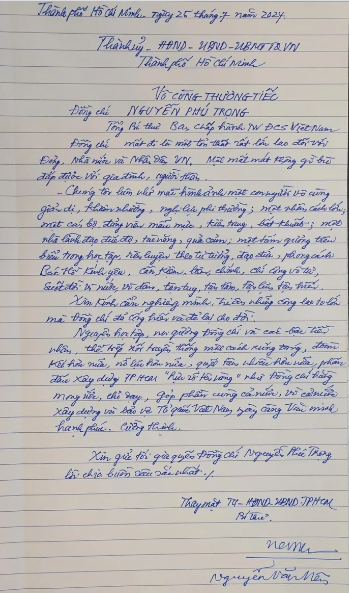 Thành phố Hồ Chí Minh, ngày 25 tháng 7 năm 2024.
Thành ủy - HĐND - UBND - UBMTTQVN
Thành phố Hồ Chí Minh
Vô CÙNG THƯƠNG TIẾC
Đồng chí NGUYỄN PHÚ TRỌNG
Tổng Bí thư Ban Chấp hành TW ĐCS Việt Nam
Đồng chí mất đi là một tổn thất rất lớn lao đối với
Đảng, Nhà nước và Nhân Dân VN. Một mất mát không gì bù
đắp được với gia đình, người thân.
- Chúng tôi luôn nhớ mãi hình ảnh một con người vô cùng
giản dị, khiêm nhường, nghĩa tình phi thường; một nhân cách lớn,
một cán bộ, đảng viên mẫu mực, kiên trung, bất khuất; một
nhà lãnh đạo đầy đức, tài năng, quả cảm, một tấm gương tiêu
biểu trong học tập, rèn luyện theo tư tưởng, đạo đức, phong cách
Bác Hồ kính yêu. Cần, kiệm, liêm, chính, chí công vô tư,
suốt đời vì nước, vì dân, tận tụy, tận tâm, tận lực, tận hiến.
Xin kính cẩn nghiêng mình, tri ân những công lao to lớn
mà Đồng chí đã cống hiến và để lại cho đời.
Nguyện học tập, noi gương Đồng chí và các bậc tiền
nhân, tiếp nối truyền thống
kết hơn nữa, nỗ lực hơn nữa, quyết tâm nhiều hơn nữa, phấn
đấu xây dựng TPHCM "rực rỡ tên vàng" như Đồng chí hằng
mong mỏi, chỉ dạy, góp phần cùng cả nước, vì cả nước
xây dựng và bảo vệ Tổ quốc Việt Nam ngày càng Văn minh
hạnh phúc. Cường thịnh.
Xin gửi tới gia quyến Đồng chí Nguyễn Phú Trọng
lời chia buồn sâu sắc nhất./.
Thay mặt TU - HĐND - UBND TPHCM
Bí thư.
Nguyễn Văn Nên